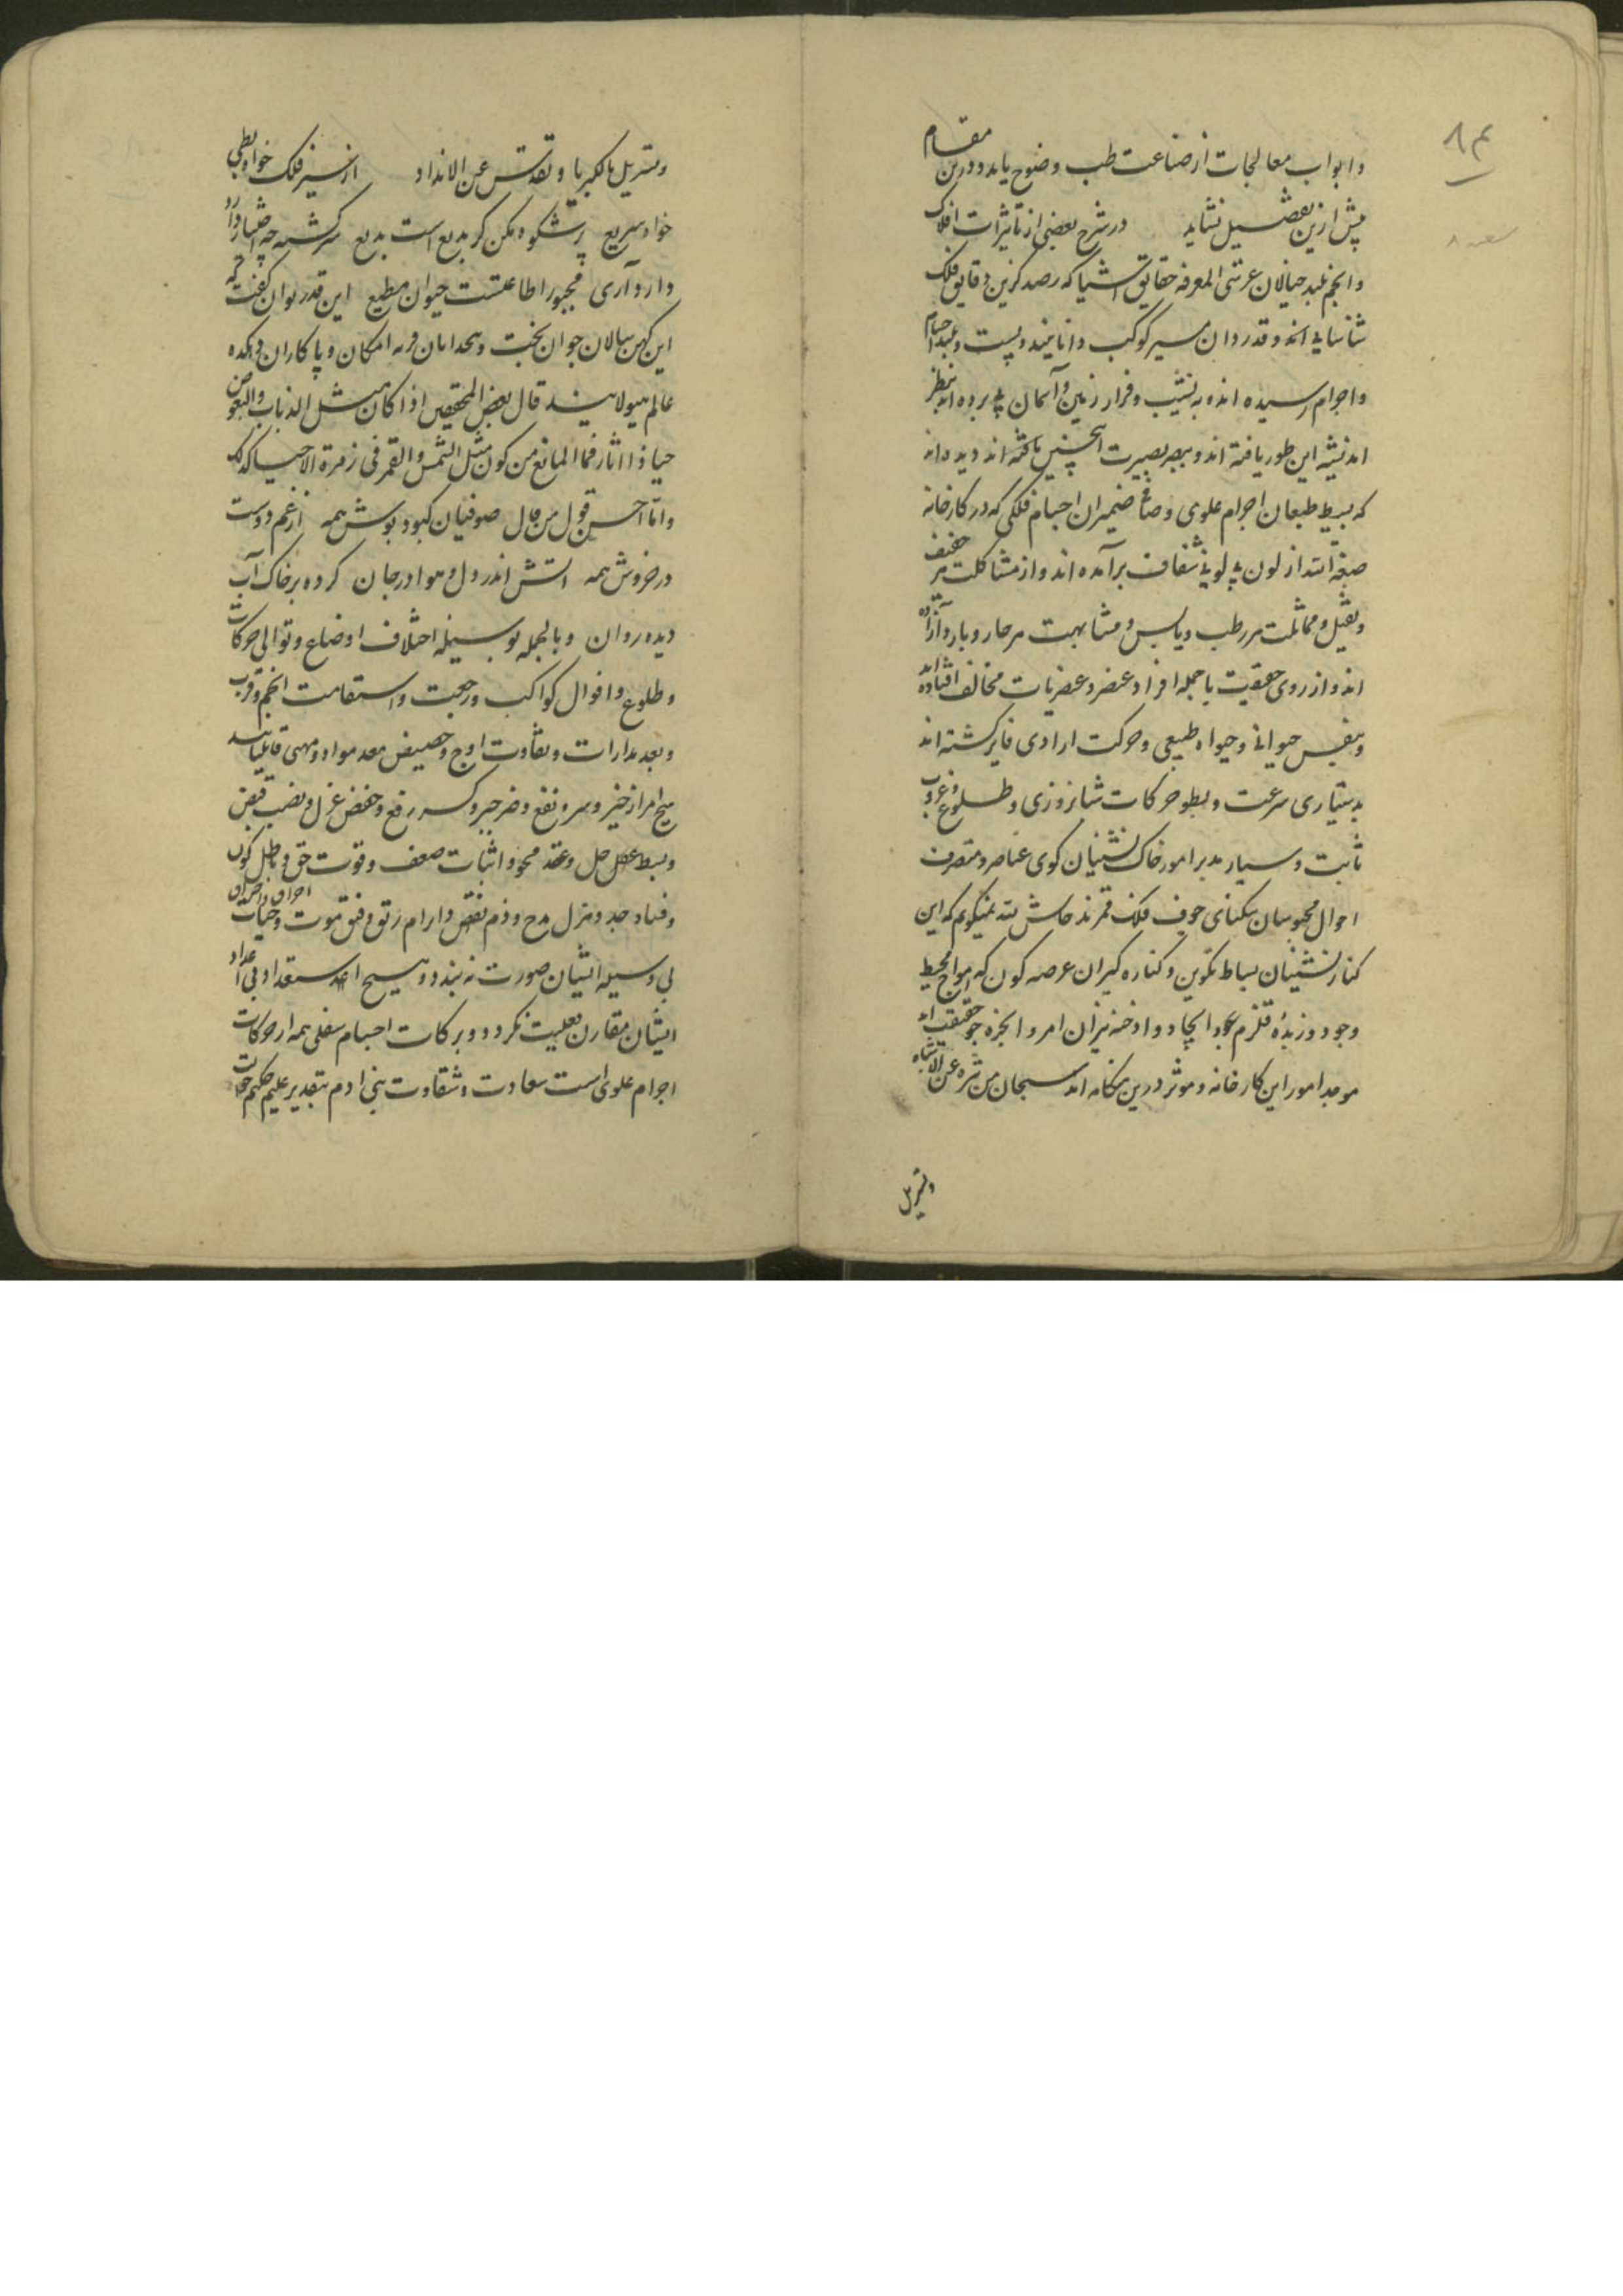 ۸۴
وابواب معالجات از صناعت طب وضوح یابد و درین مقام
پیش ازین تفصیل نشاید در شرح بعضی از تاثیرات افلاک
وانجم بلند خیالان عرش المعرفه حقایق اشیا که رصد گزین دقایق فلک
شناسایی اند و قدردان مسیر کوکب دانایی بلند و پست
واجرام رسیده اند و به نشیب و فراز زمین و آسمان پی برده اند بنظر
اندیشه این طور یافته اند و ببصر بصیرت اینچنین شناخته اند دیده اند
که بسیط طبعان اجرام علوی و صافی ضمیران اجسام فلکی که در کارخانه
صبغة الله از لون به لونی شفاف برآمده اند و از مشاکلت هر خفیف
وثقیل و مماثلت هر رطب و یابس و مشابهت هر حار و بارد آزاده
اند و از روی حقیقت با جمله افراد عنصر و عنصریات مخالف افتاده اند
وبنفس حیوانی و حیواة طبیعی و حرکت ارادی فایز گشته اند
بدستیاری سرعت و بطو حرکات شبانروزی و طلوع و غروب
ثابت و سیار مدبر امور خاک نشینان کوی عناصر و متصرف
احوال محبوسان تنکنای جوف فلک قمرند حاش لله نمیگویم که این
کنار نشینان بساط تکوین و کناره گیران عرصه کون که امواج محیط
وجود و زبده قلزم ایجاد و ادخنه نیران امر و ابخره جو حقیقت اند
موجد امور این کارخانه و موثر درین هنگامه اند سبحان من تنزه عن الاشباه
وتسربل
وتسربل بالکبریا وتقدس عن الانداد از سیر فلک خواه بطی
خواه سریع پر شکوه مکن کر بدیع است بدیع سرگشته چه اختیار دارد
دارد آری مجبور اطاعتست حیوان مطیع این قدر توان گفت که
این کهن سالان جوان بخت و کدخدایان قریه امکان و پاکاران دهکده
عالم هیولا هیند قال بعض المحققین اذا کان مثل الذباب والبعوض
حیا ذا اثار فما المانع من کون مثل الشمس والقمر فی زمرة الاحیا کذلک
واما احسن قول من قال صوفیان کبود پوش همه از غم دوست
در خروش همه آتش اندر دل و هوا در جان کرده بر خاک آب
دیده روان و بالجمله بوسیله اختلاف اوضاع و توالی حرکات
و طلوع و افوال کواکب و رجعت و استقامت انجم و قرب
وبعد مدارات و تفاوت اوج و حضیض معد مواد و مهیی قابلیاتند
هیچ امر از خیر و شر و نفع و ضر جبر و کسر رفع و خفض عزل و نصب قبض
وبسط عقل حل و عقد محو و اثبات ضعف و قوت حق و باطل کون
وفساد جد و هزل مدح و ذم نقض و ابرام رتق و فتق موت و حیات
بی وسیله ایشان صورت نه بندد و هیچ استعداد بی اعداد
ایشان مقارن فعلیت نگردد و برکات اجسام سفلی همه از حرکات
اجرام علوی است سعادت و شقاوت بنی ادم بتقدیر علیم حکیم